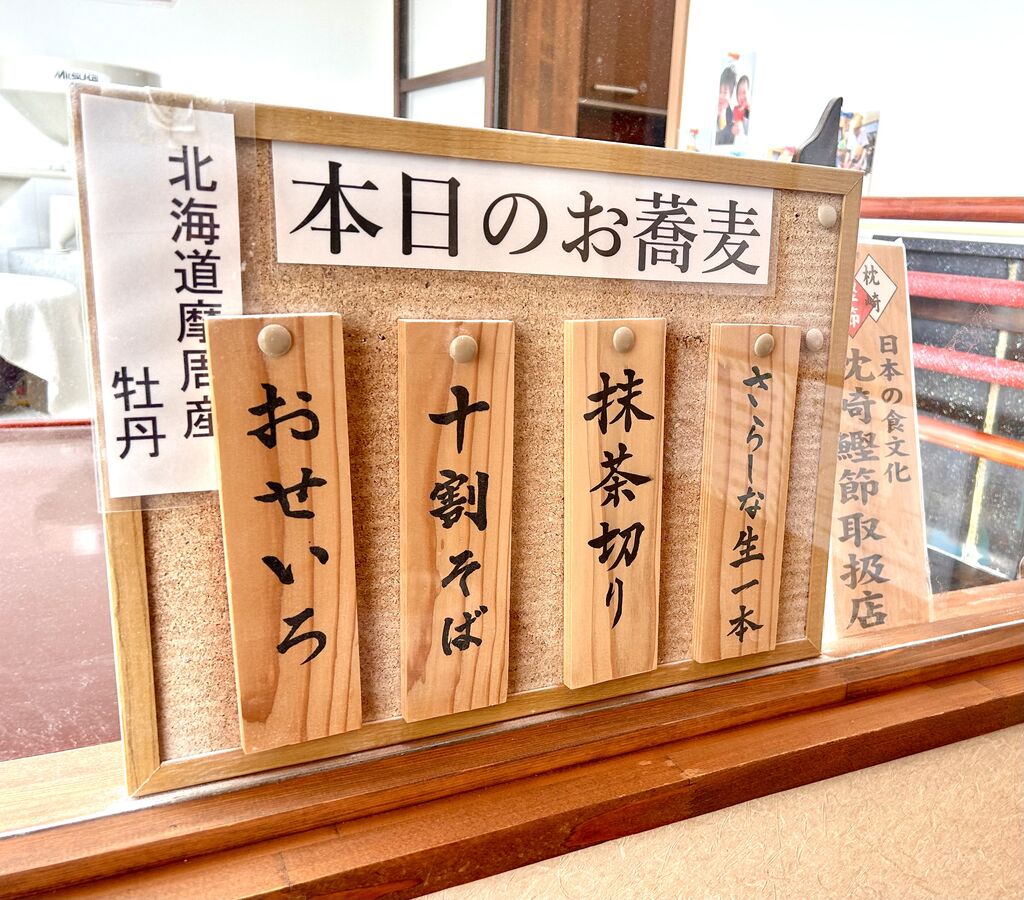 本日のお蕎麦
北海道摩周産
牡丹
おせいろ
十割そば
抹茶切り
さらしな生一本
枕崎
日本の食文化
枕崎鰹節取扱店